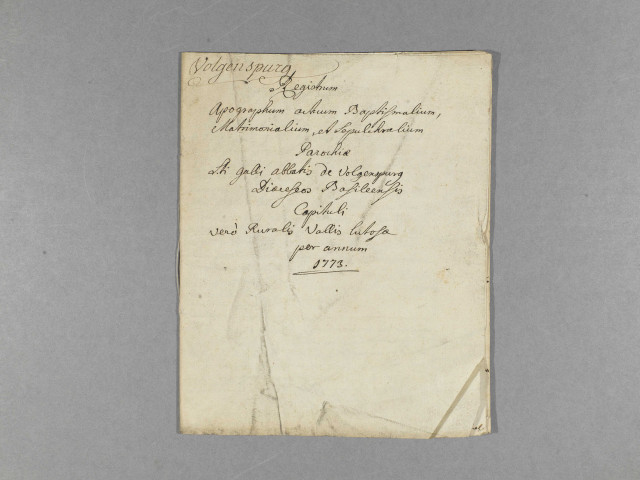 Volgenspurg
Registrum
Apographum actuum Baptismalium,
Matrimonialium, et Sepulchralium
Parochiæ
Sti galli abbatis de Volgenspurg
Dioeceseos Basileensis
Capituli
verò Ruralis Vallis lutosa
per annum
1773.